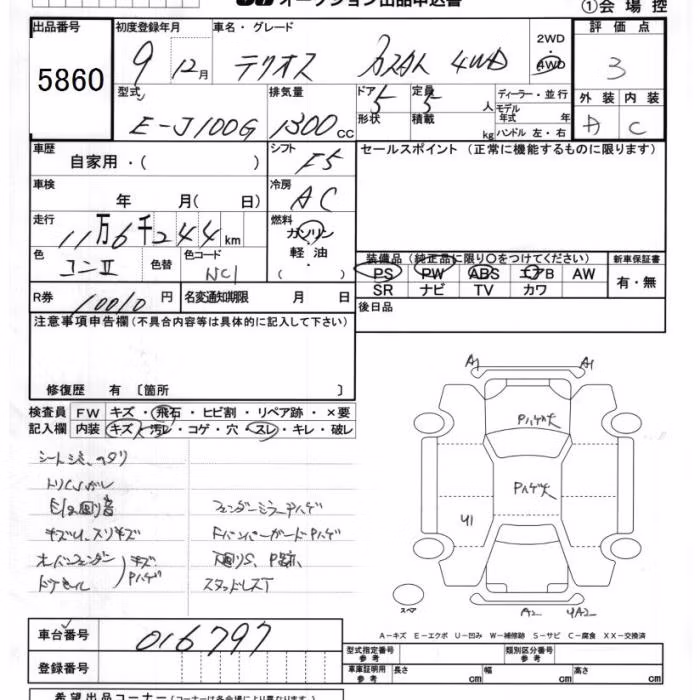 オークション出品申込書
①会場控
出品番号
5860
初度登録年月 車名・グレード
9 12月 テリオス 4WD
2WD
4WD
評価点
3
型式 排気量 ドア 定員 ディーラー・並行
E-J100G 1300CC 5 5人 モデル年式 年
形状 積載 kg ハンドル 左・右
外装 内装
A C
車歴 シフト
自家用・( ) F5
セールスポイント (正常に機能するものに限ります)
車検 冷房
年 月( 日) AC
走行 燃料
11万6千244km ガソリン
軽油・
( )
色 色替 色コード
コンII NC1
装備品(純正品に限り〇をつけてください) 新車保証書
PS PW ABS エアB AW 有・無
SR ナビ TV カワ
R券 10010円 名変通知期限 月 日
後日品
注意事項申告欄(不具合内容等は具体的に記入して下さい)
修復歴 有 〔箇所 〕
検査員 FW キズ・飛石・ヒビ割・リペア跡・×要
記入欄 内装 キズ・汚レ・コゲ・穴・スレ・キレ・破レ
シートシミ、ヘタリ
フェンダーミラーPハゲ
キズU、スリキズ
FバンパーガードPハゲ
オーバーフェンダー キズ
下回りS、P跡
Pハゲ
スタッドレスT
A1 A1
Pハゲ大
Pハゲ大
U1
スペア
A2 UA2
A-キズ E-エクボ U-凹み W-補修跡 S-サビ C-腐食 XX-交換済
車台番号 016797
登録番号
型式指定番号 参考 類別区分番号 参考
車庫証明用 参考 長さ cm 幅 cm 高さ cm
希望出品コーナー(コーナーは各会場により異なります)